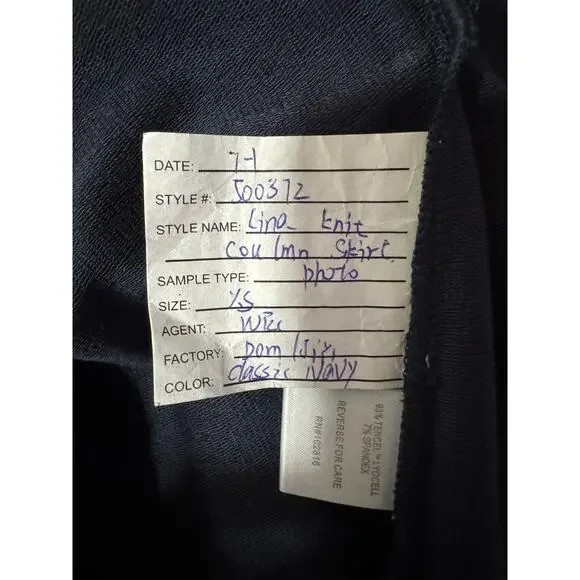 DATE: 7-1
STYLE #: 500372
STYLE NAME: Lina Knit
Coulmn Skirt
SAMPLE TYPE: photo
SIZE: XS
AGENT:
FACTORY: Dom
COLOR: classic Navy
93% TENCEL™ LYOCELL
7% SPANDEX
REVERSE FOR CARE
RN#162816